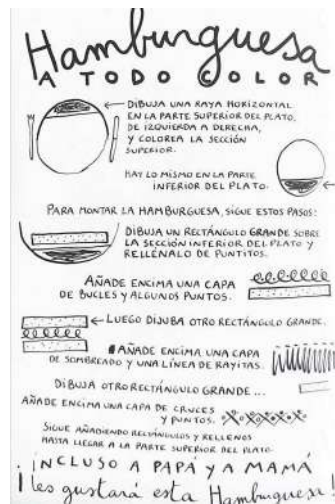 Hamburguesa
A TODO COLOR
DIBUJA UNA RAYA HORIZONTAL
EN LA PARTE SUPERIOR DEL PLATO,
DE IZQUIERDA A DERECHA,
Y COLOREA LA SECCIÓN
SUPERIOR.
HAZ LO MISMO EN LA PARTE
INFERIOR DEL PLATO.
PARA MONTAR LA HAMBURGUESA, SIGUE ESTOS PASOS:
DIBUJA UN RECTÁNGULO GRANDE SOBRE
LA SECCIÓN INFERIOR DEL PLATO Y
RELLÉNALO DE PUNTITOS.
AÑADE ENCIMA UNA CAPA
DE BUCLES Y ALGUNOS PUNTOS.
LUEGO DIJUBA OTRO RECTÁNGULO GRANDE.
AÑADE ENCIMA UNA CAPA
DE SOMBREADO Y UNA LÍNEA DE RAYITAS.
DIBUJA OTRO RECTÁNGULO GRANDE...
AÑADE ENCIMA UNA CAPA DE CRUCES
Y PUNTOS.
SIGUE AÑADIENDO RECTÁNGULOS Y RELLENOS
HASTA LLEGAR A LA PARTE SUPERIOR DEL PLATO.
¡INCLUSO A PAPÁ Y A MAMÁ
les gustará esta Hamburguesa